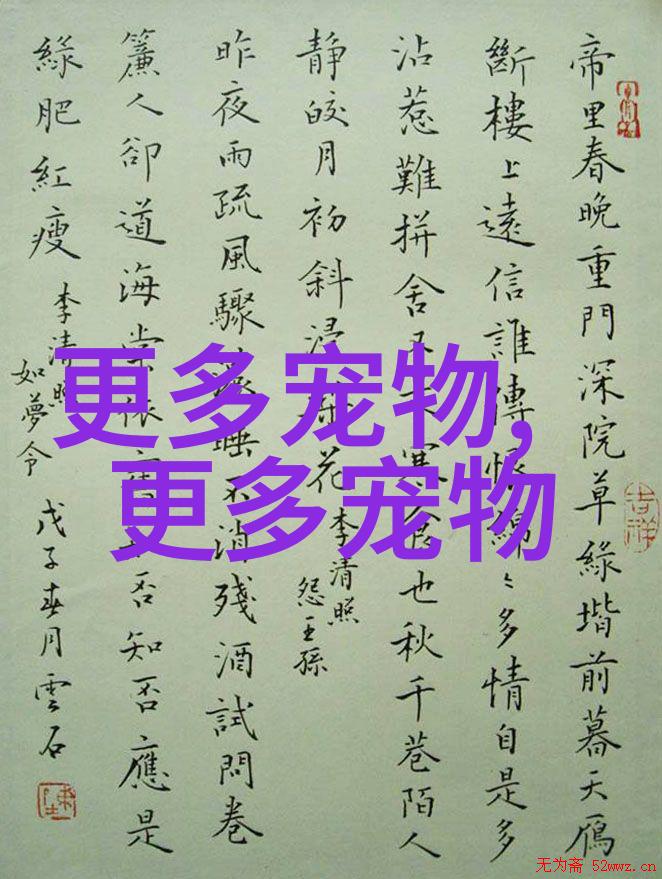 帝里春晚重門深院草綠堦前暮天鴈
斷樓上遠信誰傳恨綿〻多情自是多
沾惹難拼舍又寒食也秋千巷陌人
靜皎月初斜浸梨花
李清照
怨王孫
昨夜雨疏風驟濃睡不消殘酒試問卷
簾人卻道海棠依舊知否知否應是
綠肥紅瘦
李清照
如夢令
戊子春月雲石
吉祥
更多宠物,
更多宠物
无为斋 52wwz.cn